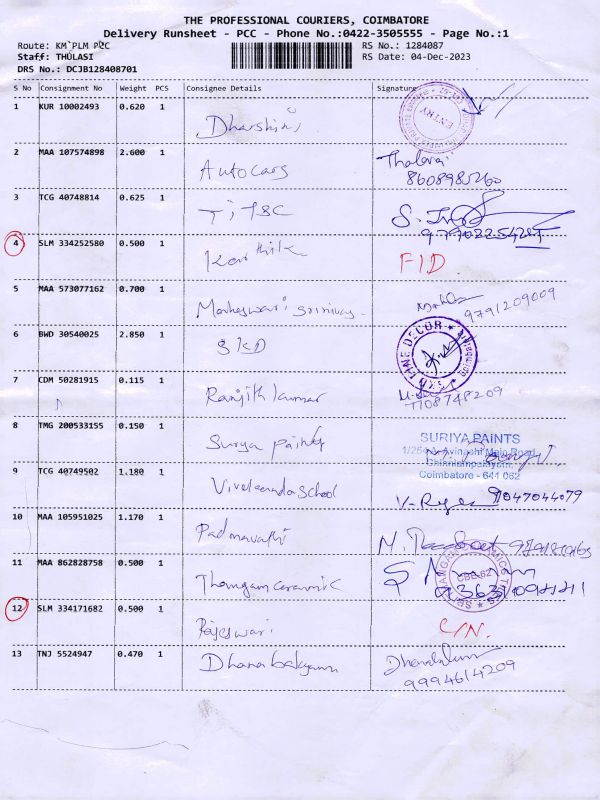 THE PROFESSIONAL COURIERS, COIMBATORE
Delivery Runsheet - PCC - Phone No.:0422-3505555 - Page No.:1
Route: KM PLM PCC RS No.: 1284087
Staff: THULASI RS Date: 04-Dec-2023
DRS No.: DCJB128408701
S No Consignment No Weight PCS Consignee Details Signature
1 KUR 10002493 0.620 1 Dharshini ENTRY
2 MAA 107574898 2.600 1 Autocars
8608985260
3 TCG 40748814 0.625 1
4 SLM 334252580 0.500 1 Karthik FID
5 MAA 573077162 0.700 1 Maheswari srinivas 9791209009
6 BWD 30540025 2.850 1 SKD SKD FINE DECOR
7 CDM 50281915 0.115 1 Ranjith kumar
7708748209
8 TMG 200533155 0.150 1 Surya paints SURIYA PAINTS
Avinashi Main Road
Chinniampalayam,
Coimbatore - 641 062
9 TCG 40749502 1.180 1 Vivekananda School 9047044079
10 MAA 105951025 1.170 1 Padmavathi
11 MAA 862828758 0.500 1 Thangam ceramik
12 SLM 334171682 0.500 1 Rajeswari C/N.
13 TNJ 5524947 0.470 1 Dhanabakyam
9994614209